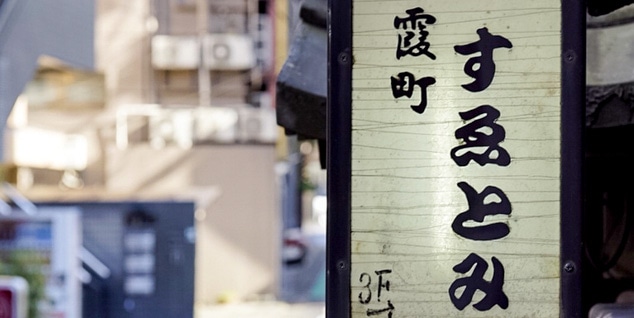 霞町
すゑとみ
3F→